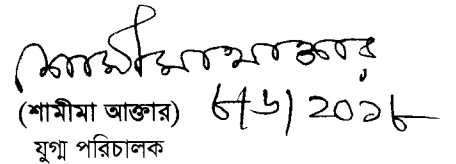 শামীমা আক্তার
(শামীমা আক্তার) ৮/৬/২০১৮
যুগ্ম পরিচালক